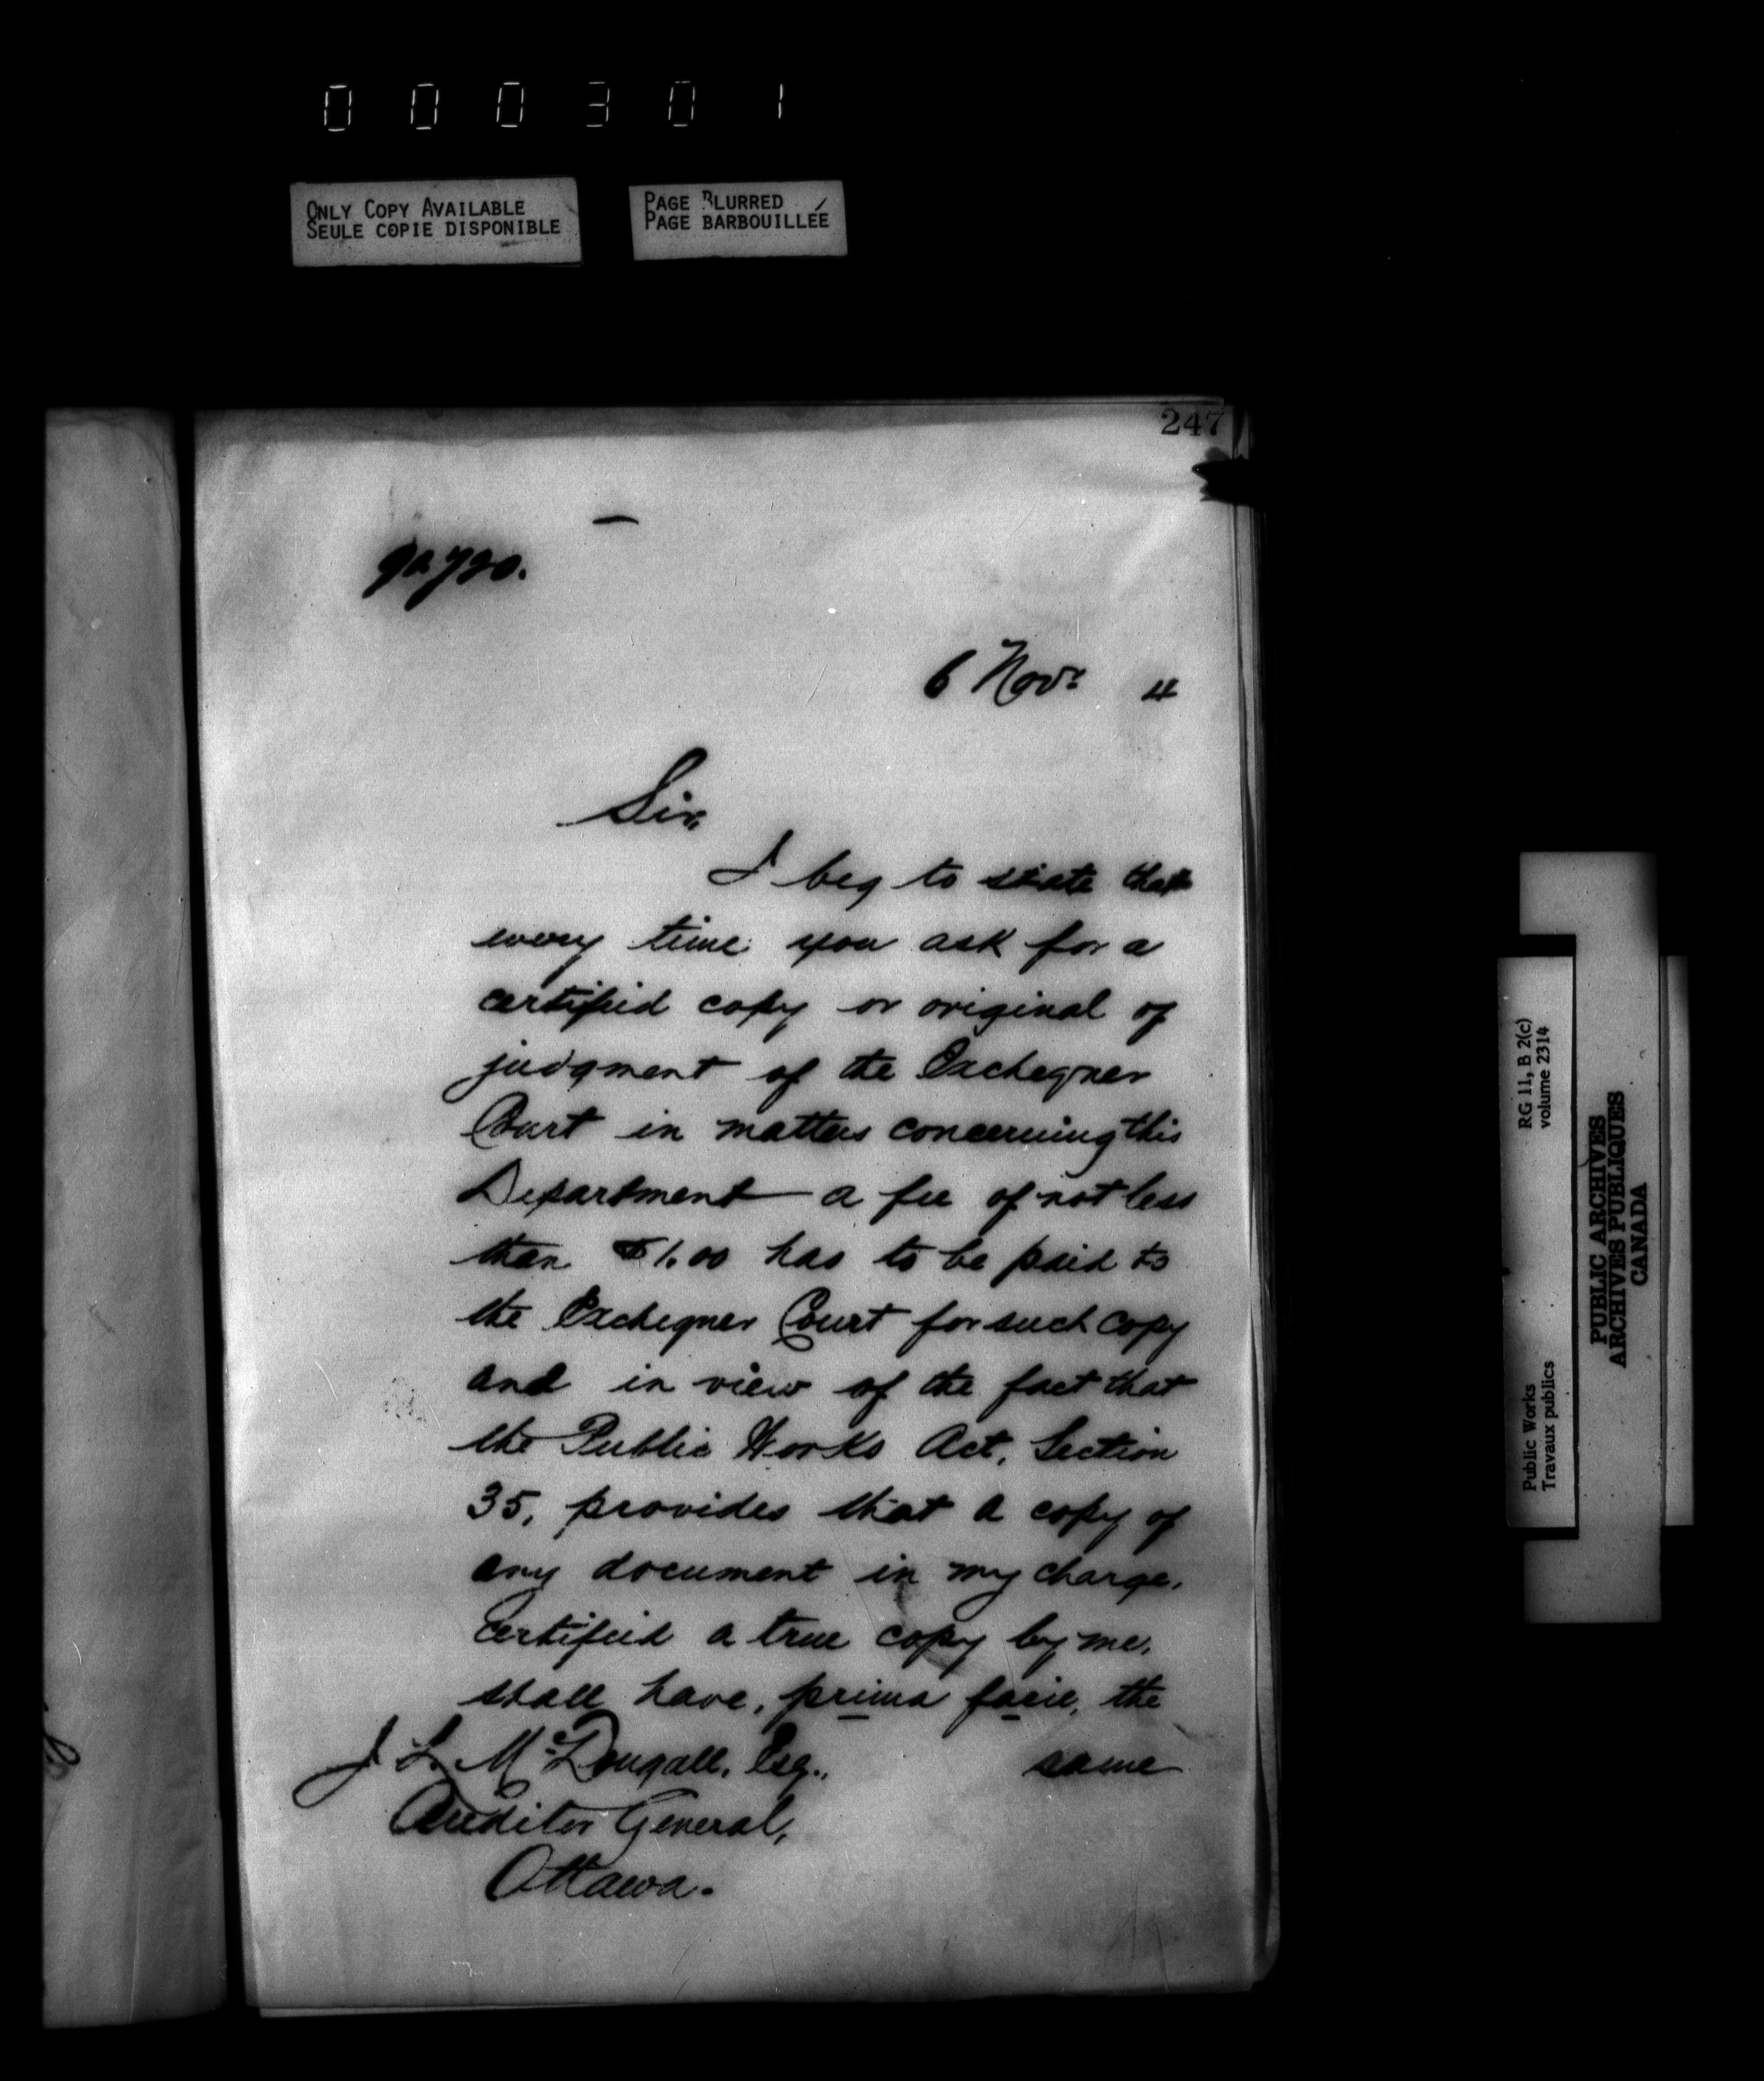 000301
ONLY COPY AVAILABLE
SEULE COPIE DISPONIBLE
PAGE BLURRED
PAGE BARBOUILLÉE
247
6 Nov. 4
Sir,
I beg to state that
every time you ask for a
certified copy or original of
judgment of the Exchequer
Court in matters concerning this
Department a fee of not less
than $1.00 has to be paid to
the Exchequer Court for such copy
and in view of the fact that
the Public Works Act, Section
35, provides that a copy of
any document in my charge,
certified a true copy by me,
shall have, prima facie, the
same
J. L. McDougall, Esq.,
Auditor General,
Ottawa.
RG 11, B 2(c)
volume 2314
Public Works
Travaux publics
PUBLIC ARCHIVES
ARCHIVES PUBLIQUES
CANADA